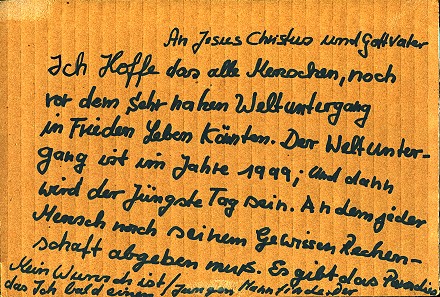 An Jesus Christus und Gott Vater
Ich Hoffe das alle Menschen, noch
vor dem sehr nahen Weltuntergang
in Frieden Leben Könnten. Der Weltunter-
gang ist im Jahre 1999; und dann
wird der Jüngste Tag sein. An dem jeder
Mensch nach seinem Gewissen Rechen-
schaft abgeben muß. Es gibt das Paradies
Mein Wunsch ist / Jungen Mann finde der
das Ich bald einen